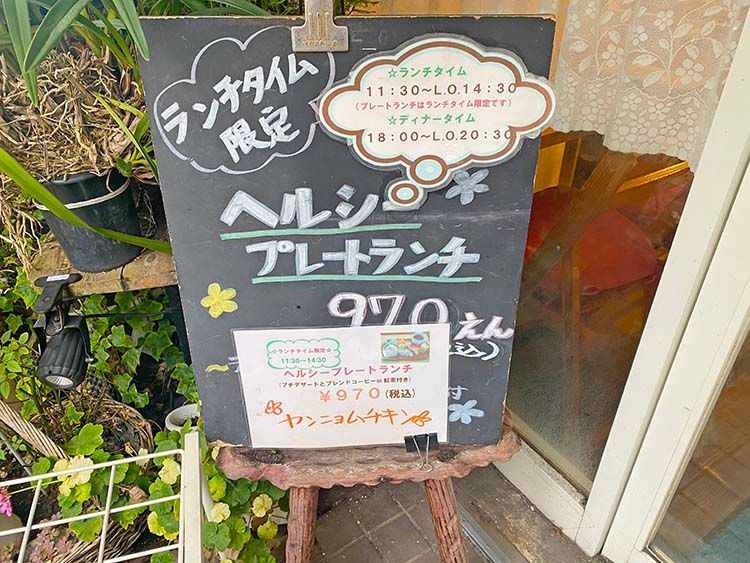 ランチタイム
限定
☆ランチタイム
11:30～L.O.14:30
(プレートランチはランチタイム限定です)
☆ディナータイム
18:00～L.O.20:30
ヘルシー
プレートランチ
970えん
込)
☆ランチタイム限定☆
11:30～14:30
ヘルシープレートランチ
(プチデザートとブレンドコーヒーor紅茶付き)
￥970(税込)
ヤンニョムチキン
付